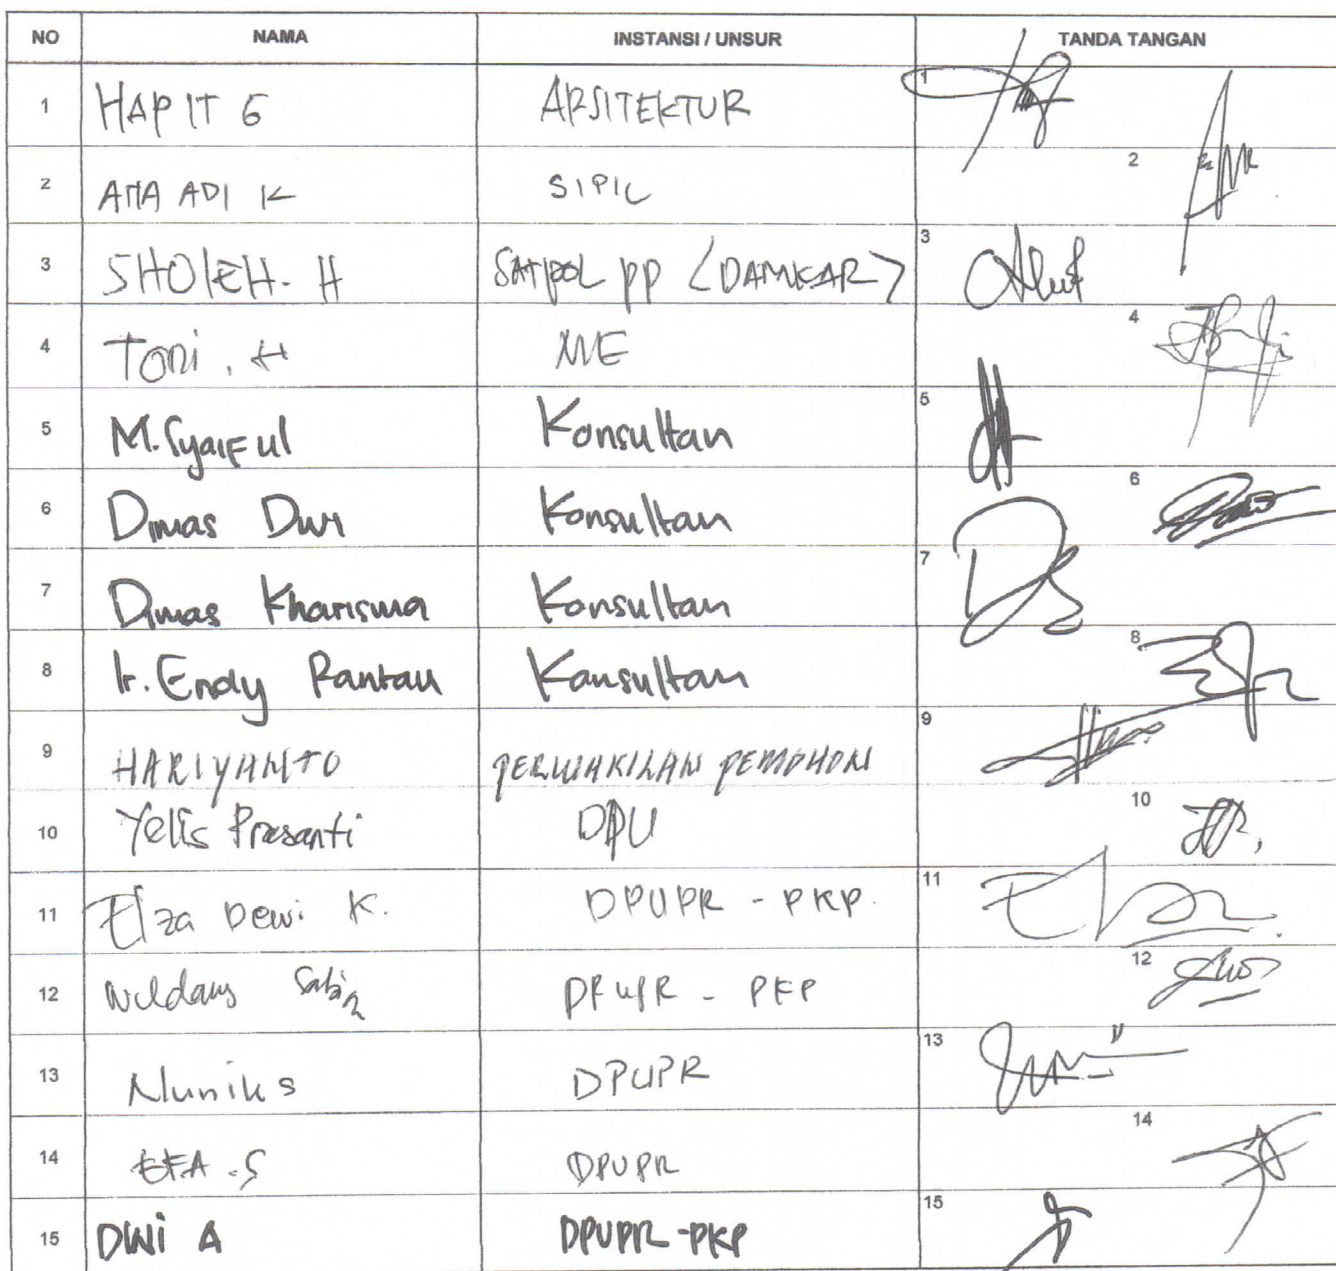 NO NAMA INSTANSI / UNSUR TANDA TANGAN
1 HAPIT G ARSITEKTUR 1
2 ADI K SIPIL 2
3 SHOLEH. H SATPOL PP (DAMKAR) 3
4 Toni . H ME 4
5 M. Syaiful Konsultan 5
6 Dimas Dwi Konsultan 6
7 Dimas Kharisma Konsultan 7
8 Ir. Endy Rantau Konsultan 8
9 HARIYANTO PERWAKILAN PEMOHON 9
10 Yelis Prasanti DPU 10
11 Elza Dewi K. DPUPR - PKP. 11
12 DPUPR - PKP 12
13 Nunik s DPUPR 13
14 EFA . S DPUPR 14
15 DWi A DPUPR-PKP 15